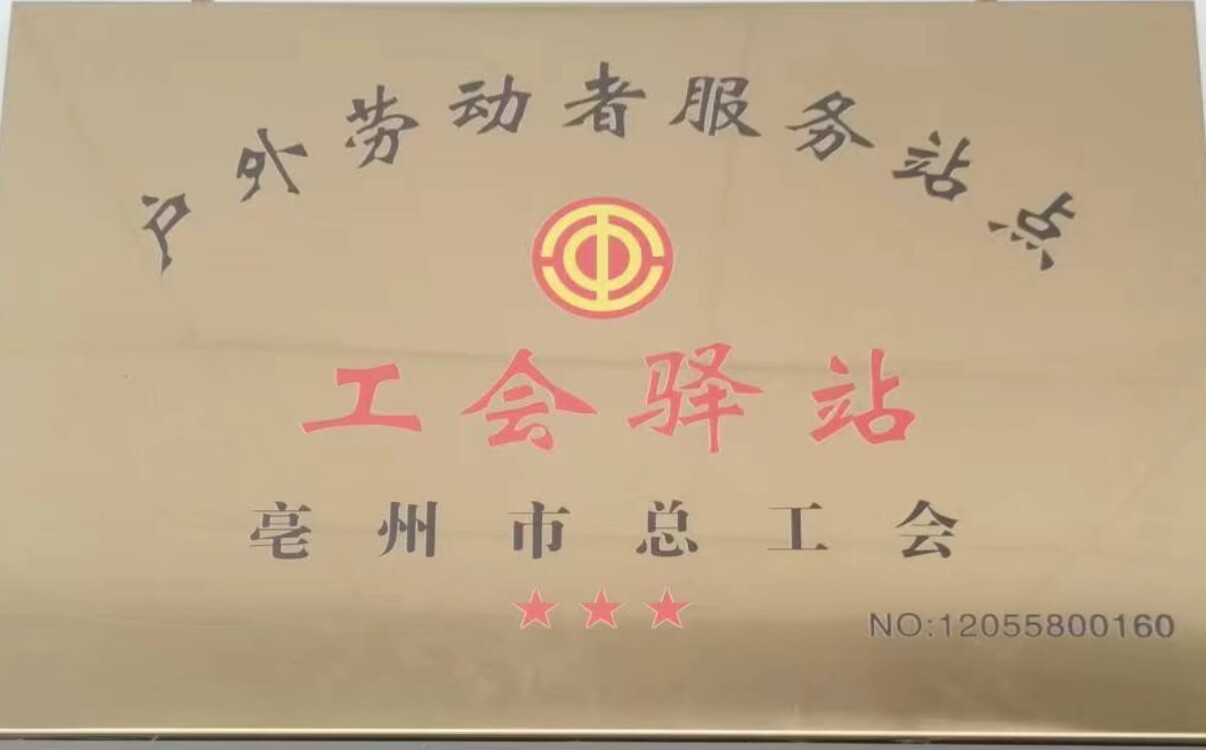 户外劳动者服务站点
工会驿站
亳州市总工会
NO:12055800160